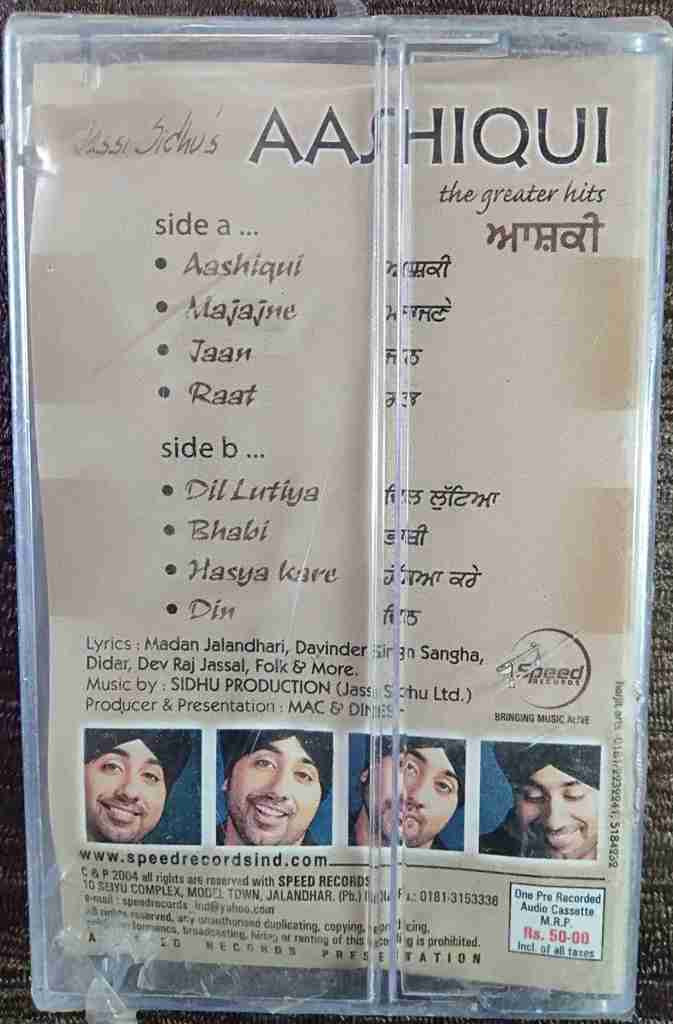 Jassi Sidhu's AASHIQUI
the greater hits
ਆਸ਼ਕੀ
side a ...
• Aashiqui ਆਸ਼ਕੀ
• Majajne ਮਜਾਜਣੇ
• Jaan ਜਾਨ
• Raat ਰਾਤ
side b ...
• Dil Lutiya ਦਿਲ ਲੁੱਟਿਆ
• Bhabi ਭਾਬੀ
• Hasya kare ਹੱਸਿਆ ਕਰੇ
• Din ਦਿਨ
Lyrics : Madan Jalandhari, Davinder Singh Sangha,
Didar, Dev Raj Jassal, Folk & More.
Music by : SIDHU PRODUCTION (Jassi Sidhu Ltd.)
Producer & Presentation : MAC & DINESH
Speed
RECORDS
BRINGING MUSIC ALIVE
www.speedrecordsind.com
C & P 2004 all rights are reserved with SPEED RECORDS
10 SEIYU COMPLEX, MODEL TOWN, JALANDHAR. (Pb.) 0181-3153338
e-mail : speedrecords_ind@yahoo.com
All rights reserved, any unauthorised duplicating, copying, reproducing,
performance, broadcasting, hiring or renting of this recording is prohibited.
A SPEED RECORDS PRESENTATION
One Pre Recorded
Audio Cassette
M.R.P.
Rs. 50-00
Incl. of all taxes